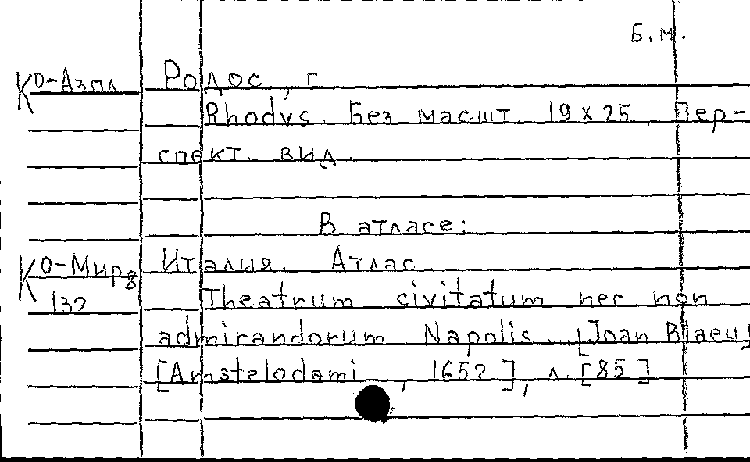 Б.м.
КО-Азпл Родос, г
Rhodvs. Без масшт. 19 х 25. Пер-
спект. вид.
В атласе:
КО-Мир 8 Италия. Атлас
132 Theatrum civitatum nec non
admirandorum Napolis. [Joan Blaeu]
[Amstelodami, 1652], л. [85]